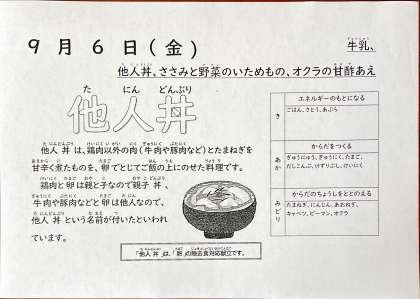 9月6日(金)
牛乳、
他人丼、ささみと野菜のいためもの、オクラの甘酢あえ
た にん どんぶり
他人丼
他人丼は、鶏肉以外の肉(牛肉や豚肉など)とたまねぎを
甘辛く煮たものを、卵でとじてご飯の上にのせた料理です。
鶏肉と卵は親と子なので親子丼、
牛肉や豚肉などと卵は他人なので、
他人丼という名前が付いたといわれ
ています。
「他人丼」は、「卵」の除去食対応献立です。
エネルギーのもとになる
き
ごはん、さとう、あぶら
からだをつくる
あか
ぎゅうにゅう、ぎゅうにく、たまご、
だしこんぶ、けずりぶし、けいにく
からだのちょうしをととのえる
みどり
たまねぎ、にんじん、あおねぎ、
キャベツ、ピーマン、オクラ